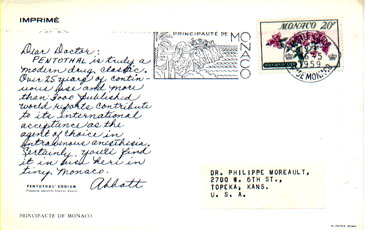 IMPRIMÉ
PRINCIPAUTE DE
MONACO
MONACO 20F
1959
Dear Doctor:
PENTOTHAL is truly a
modern drug classic.
Over 25 years of contin-
uous use and more
than 3000 published
world reports contribute
to its international
acceptance as the
agent of choice in
intravenous anesthesia.
Certainly you'll find
it in use here in
tiny Monaco.
Abbott
PENTOTHAL SODIUM
DR. PHILIPPE MOREAULT,
2700 W. 6TH ST.,
TOPEKA, KANS.
U. S. A.
PRINCIPAUTE DE MONACO